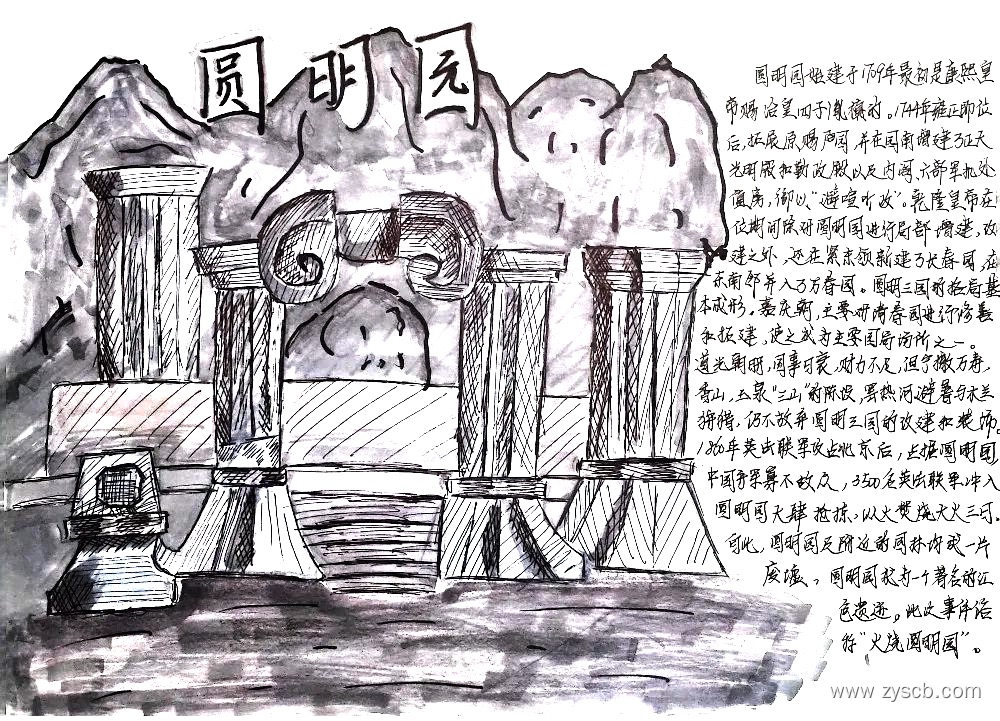 圆明园
圆明园始建于1709年最初是康熙皇
帝赐给皇四子胤禛的。1744年雍正即位
后，拓展原赐园，并在园南增建了正大
光明殿和勤政殿以及内阁、六部、军机处
值房，御以“避喧听政”。乾隆皇帝在
位期间除对圆明园进行局部增建，改
建之外，还在紧东邻新建了长春园，在
东南邻并入了万春园。圆明三园的格局基
本成形。嘉庆朝，主要对绮春园进行修缮
和拓建，使之成为主要园居场所之一。
道光朝时，国事日衰，财力不足，但宁撤万寿，
香山，玉泉“三山”的陈设，罢热河避暑与木兰
狩猎，仍不放弃圆明三园的改建和装饰。
1860年英法联军攻占北京后，占据圆明园
中国守军寡不敌众，3500名英法联军冲入
圆明园大肆抢掠，以火焚烧大火三日，
自此，圆明园及附近的园林沦或一片
废墟。圆明园就为一个著名的红
色遗迹。此次事件语
称“火烧圆明园”。
www.zyscb.com